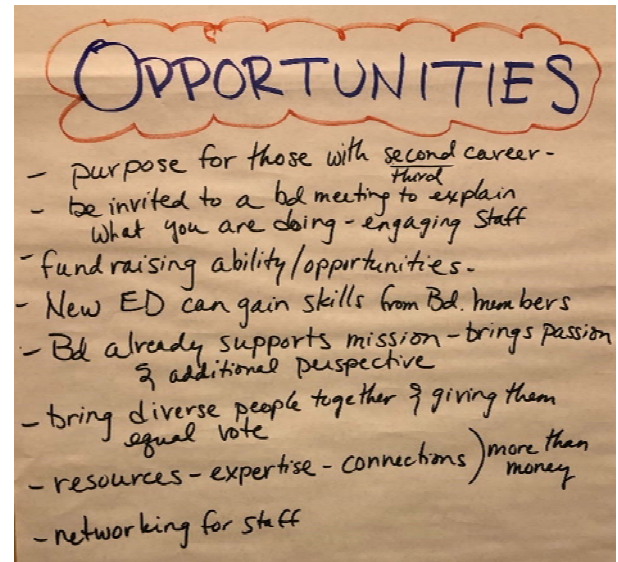 OPPORTUNITIES
- purpose for those with second career -
third
- be invited to a bd meeting to explain
what you are doing - engaging staff
- fundraising ability/opportunities -
- New ED can gain skills from Bd. members
- Bd already supports mission - brings passion
& additional perspective
- bring diverse people together & giving them
equal vote
- resources - expertise - connections ) more than
money
- networking for staff